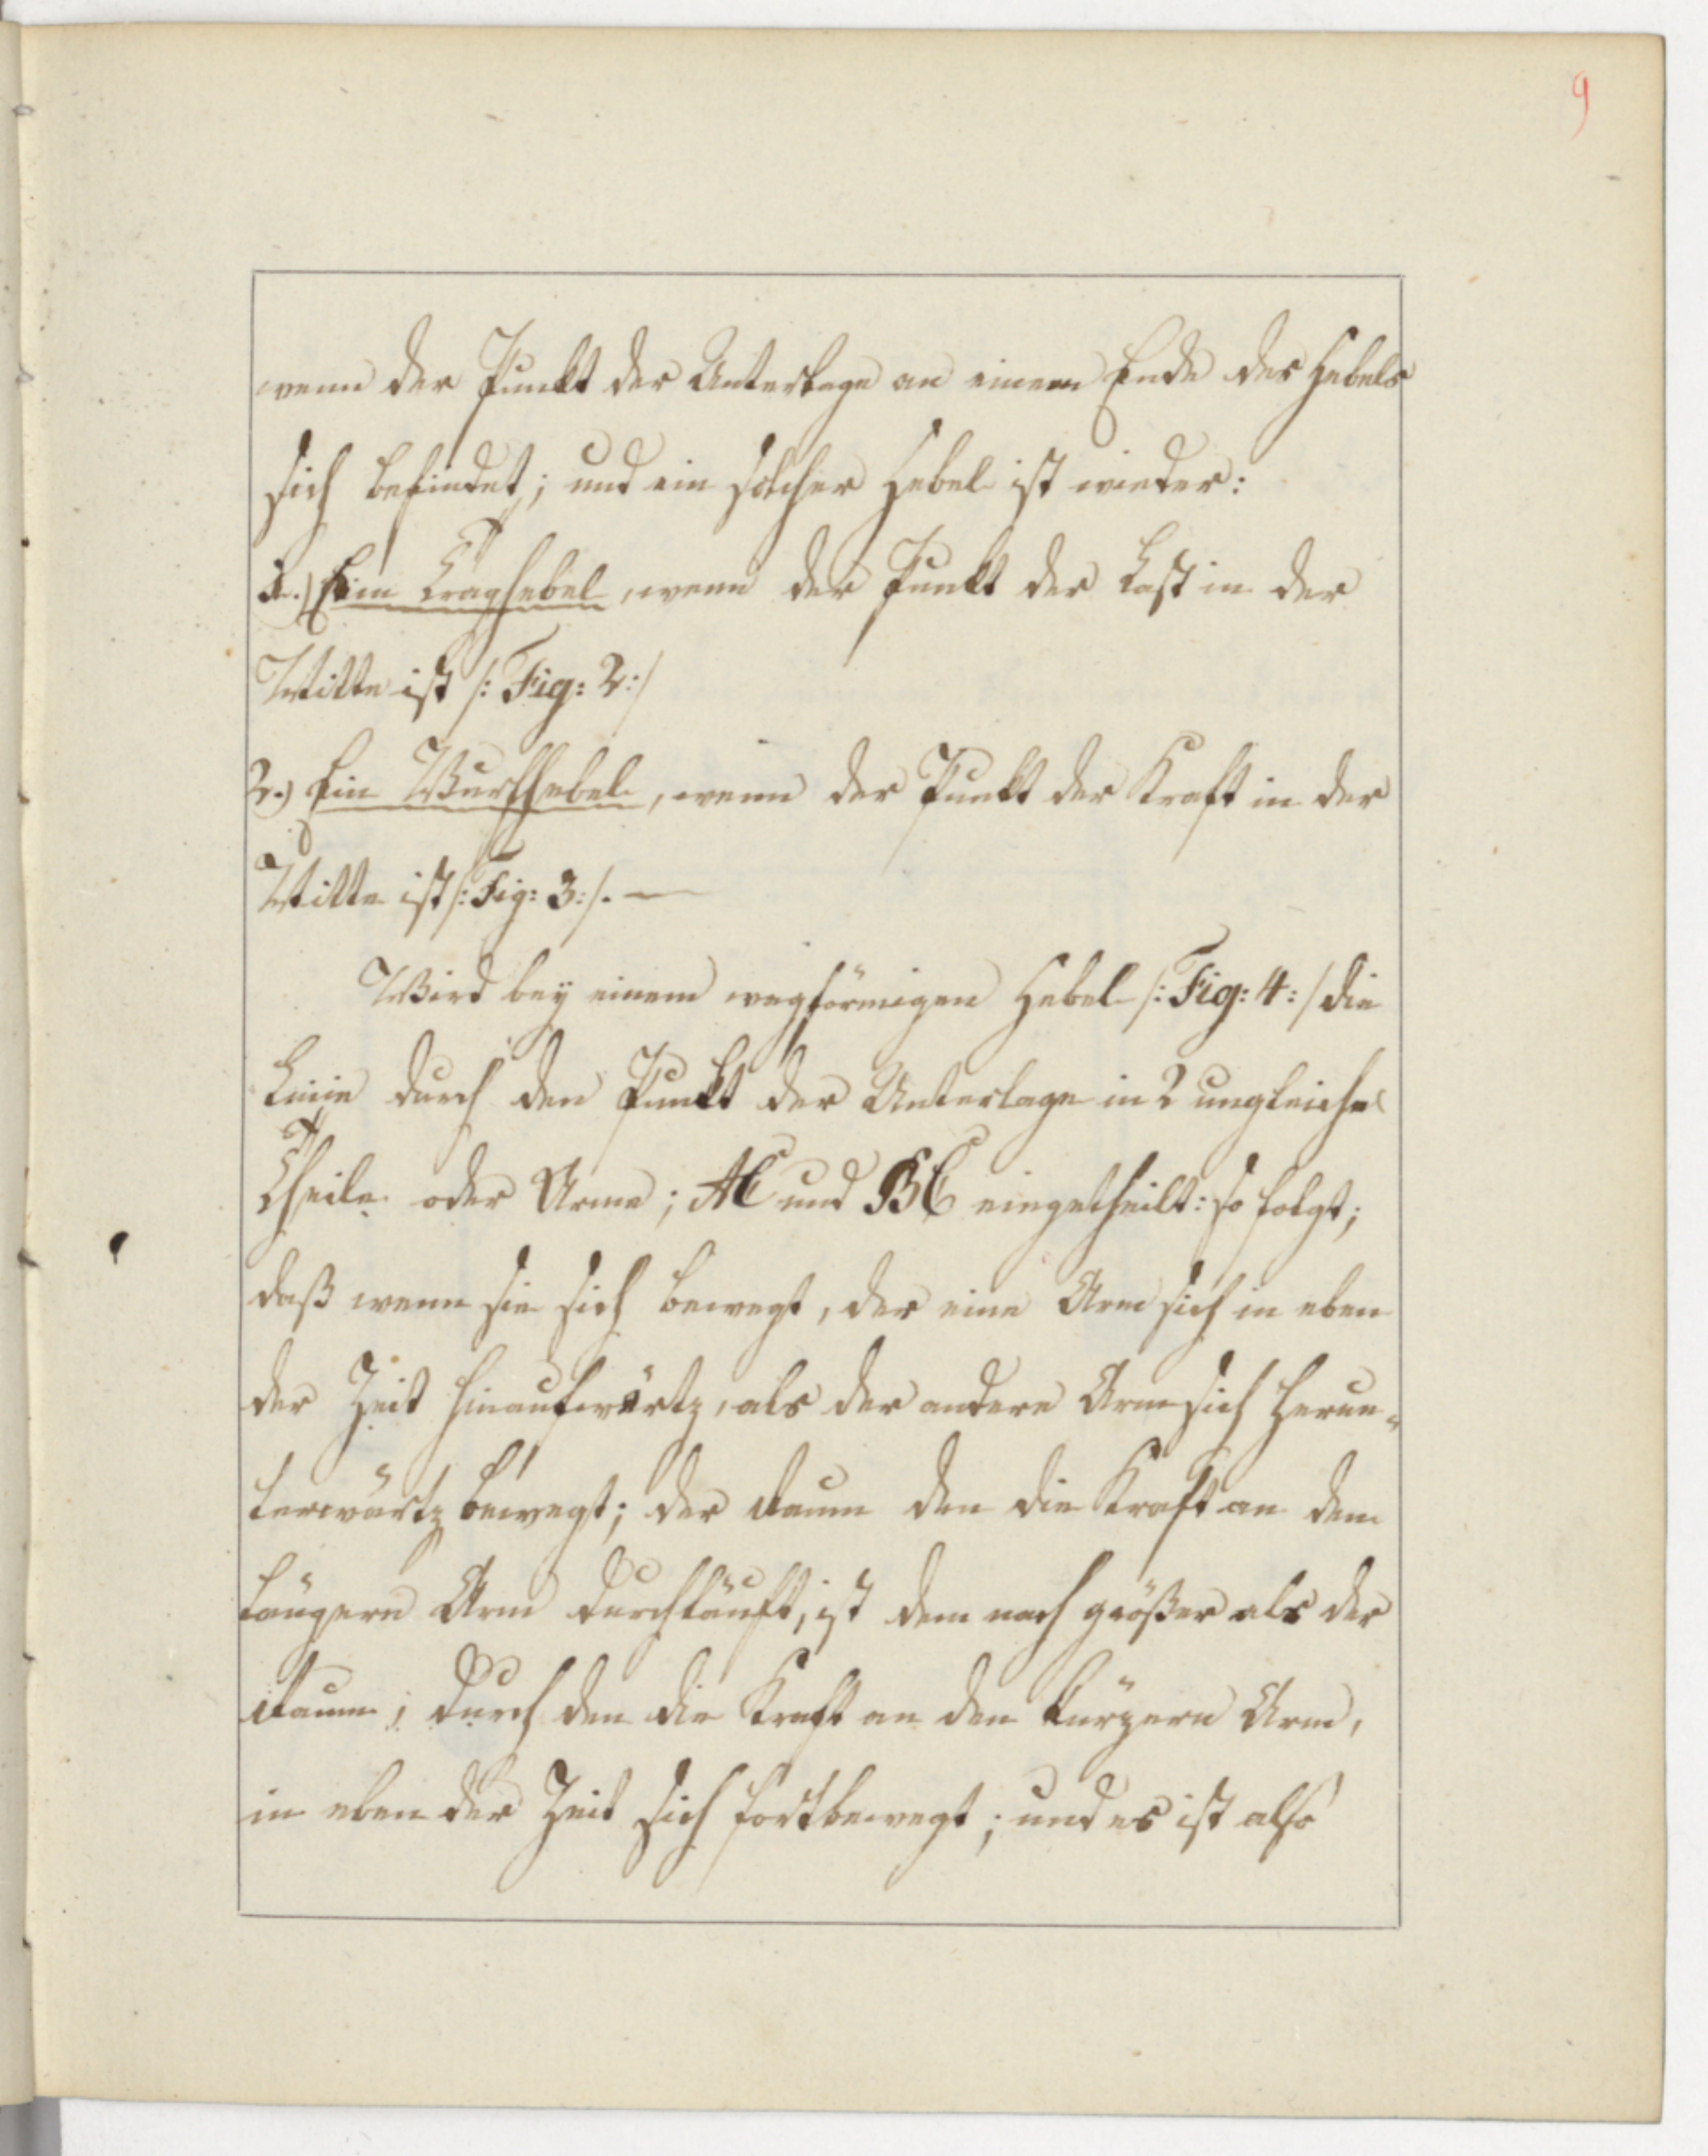 9
wenn der Punkt der Unterlage an einem Ende des Hebels
sich befindet; und ein solcher Hebel ist wieder:
1.) Ein Traghebel, wenn der Punkt der Last in der
Mitte ist /: Fig: 2:/
2.) Ein Wurfhebel, wenn der Punkt der Kraft in der
Mitte ist /: Fig: 3:/. —
Wird bey einem wagförmigen Hebel /: Fig: 4:/ die
Linie durch den Punkt der Unterlage in 2 ungleiche
Theile oder Arme; AC und BC eingetheilt: so folgt;
daß wenn sie sich bewegt, der eine Arm sich in eben
der Zeit hinaufwärtz, als der andere Arm sich herun-
terwärtz bewegt; der Raum den die Kraft an dem
längern Arm durchläuft, ist dem nach größer als der
Raum, durch den die Kraft an den kürzern Arm,
in eben der Zeit sich fortbewegt; und es ist also